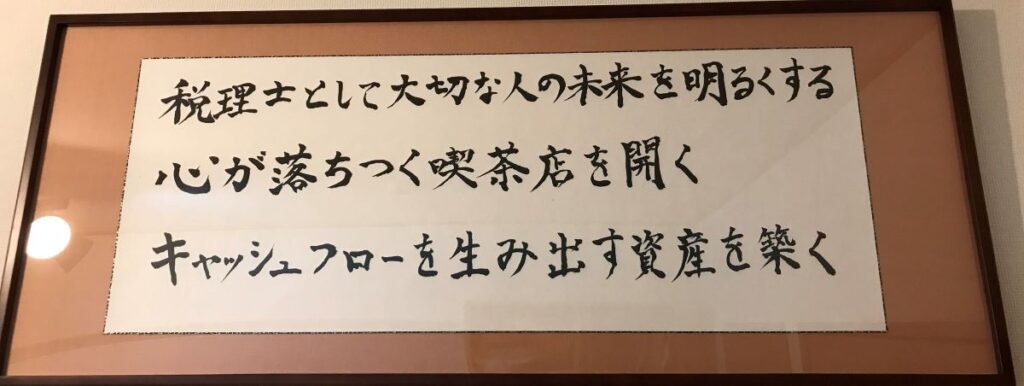 税理士として大切な人の未来を明るくする
心が落ちつく喫茶店を開く
キャッシュフローを生み出す資産を築く